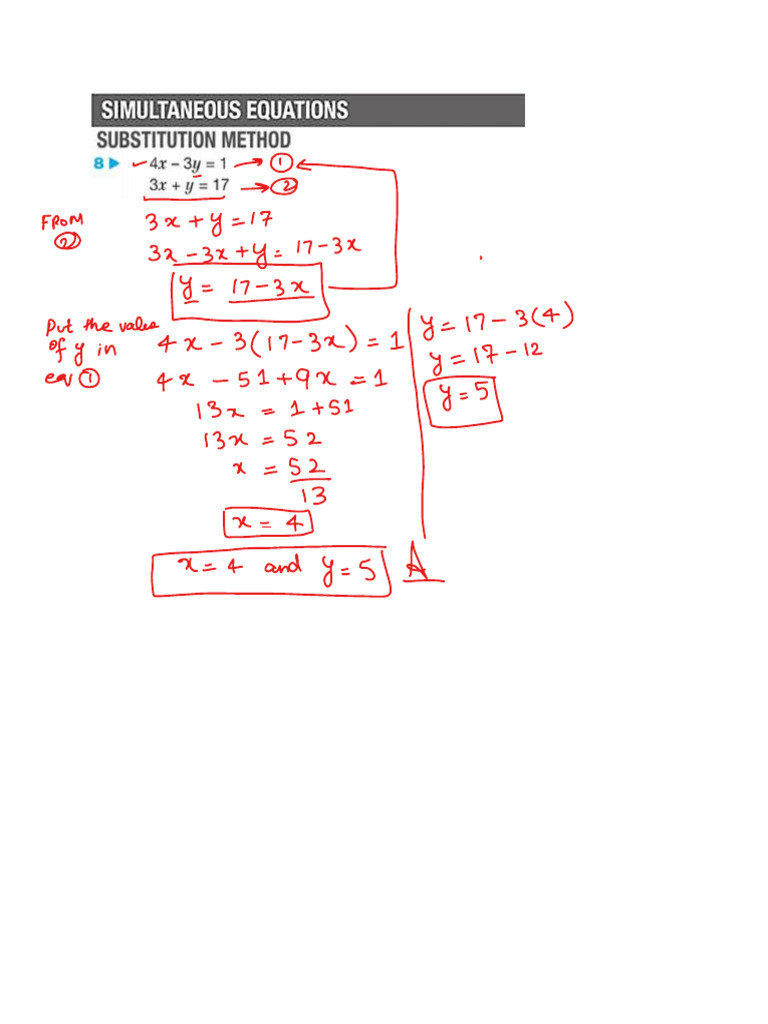 SIMULTANEOUS EQUATIONS
SUBSTITUTION METHOD
8 ▶ 4x – 3y = 1 → ①
3x + y = 17 → ②
FROM ②
3x + y = 17
3x – 3x + y = 17 – 3x
y = 17 – 3x
Put the value
of y in
eq ①
4x – 3(17 – 3x) = 1
4x – 51 + 9x = 1
13x = 1 + 51
13x = 52
x = 52/13
x = 4
y = 17 – 3(4)
y = 17 – 12
y = 5
x = 4 and y = 5 A